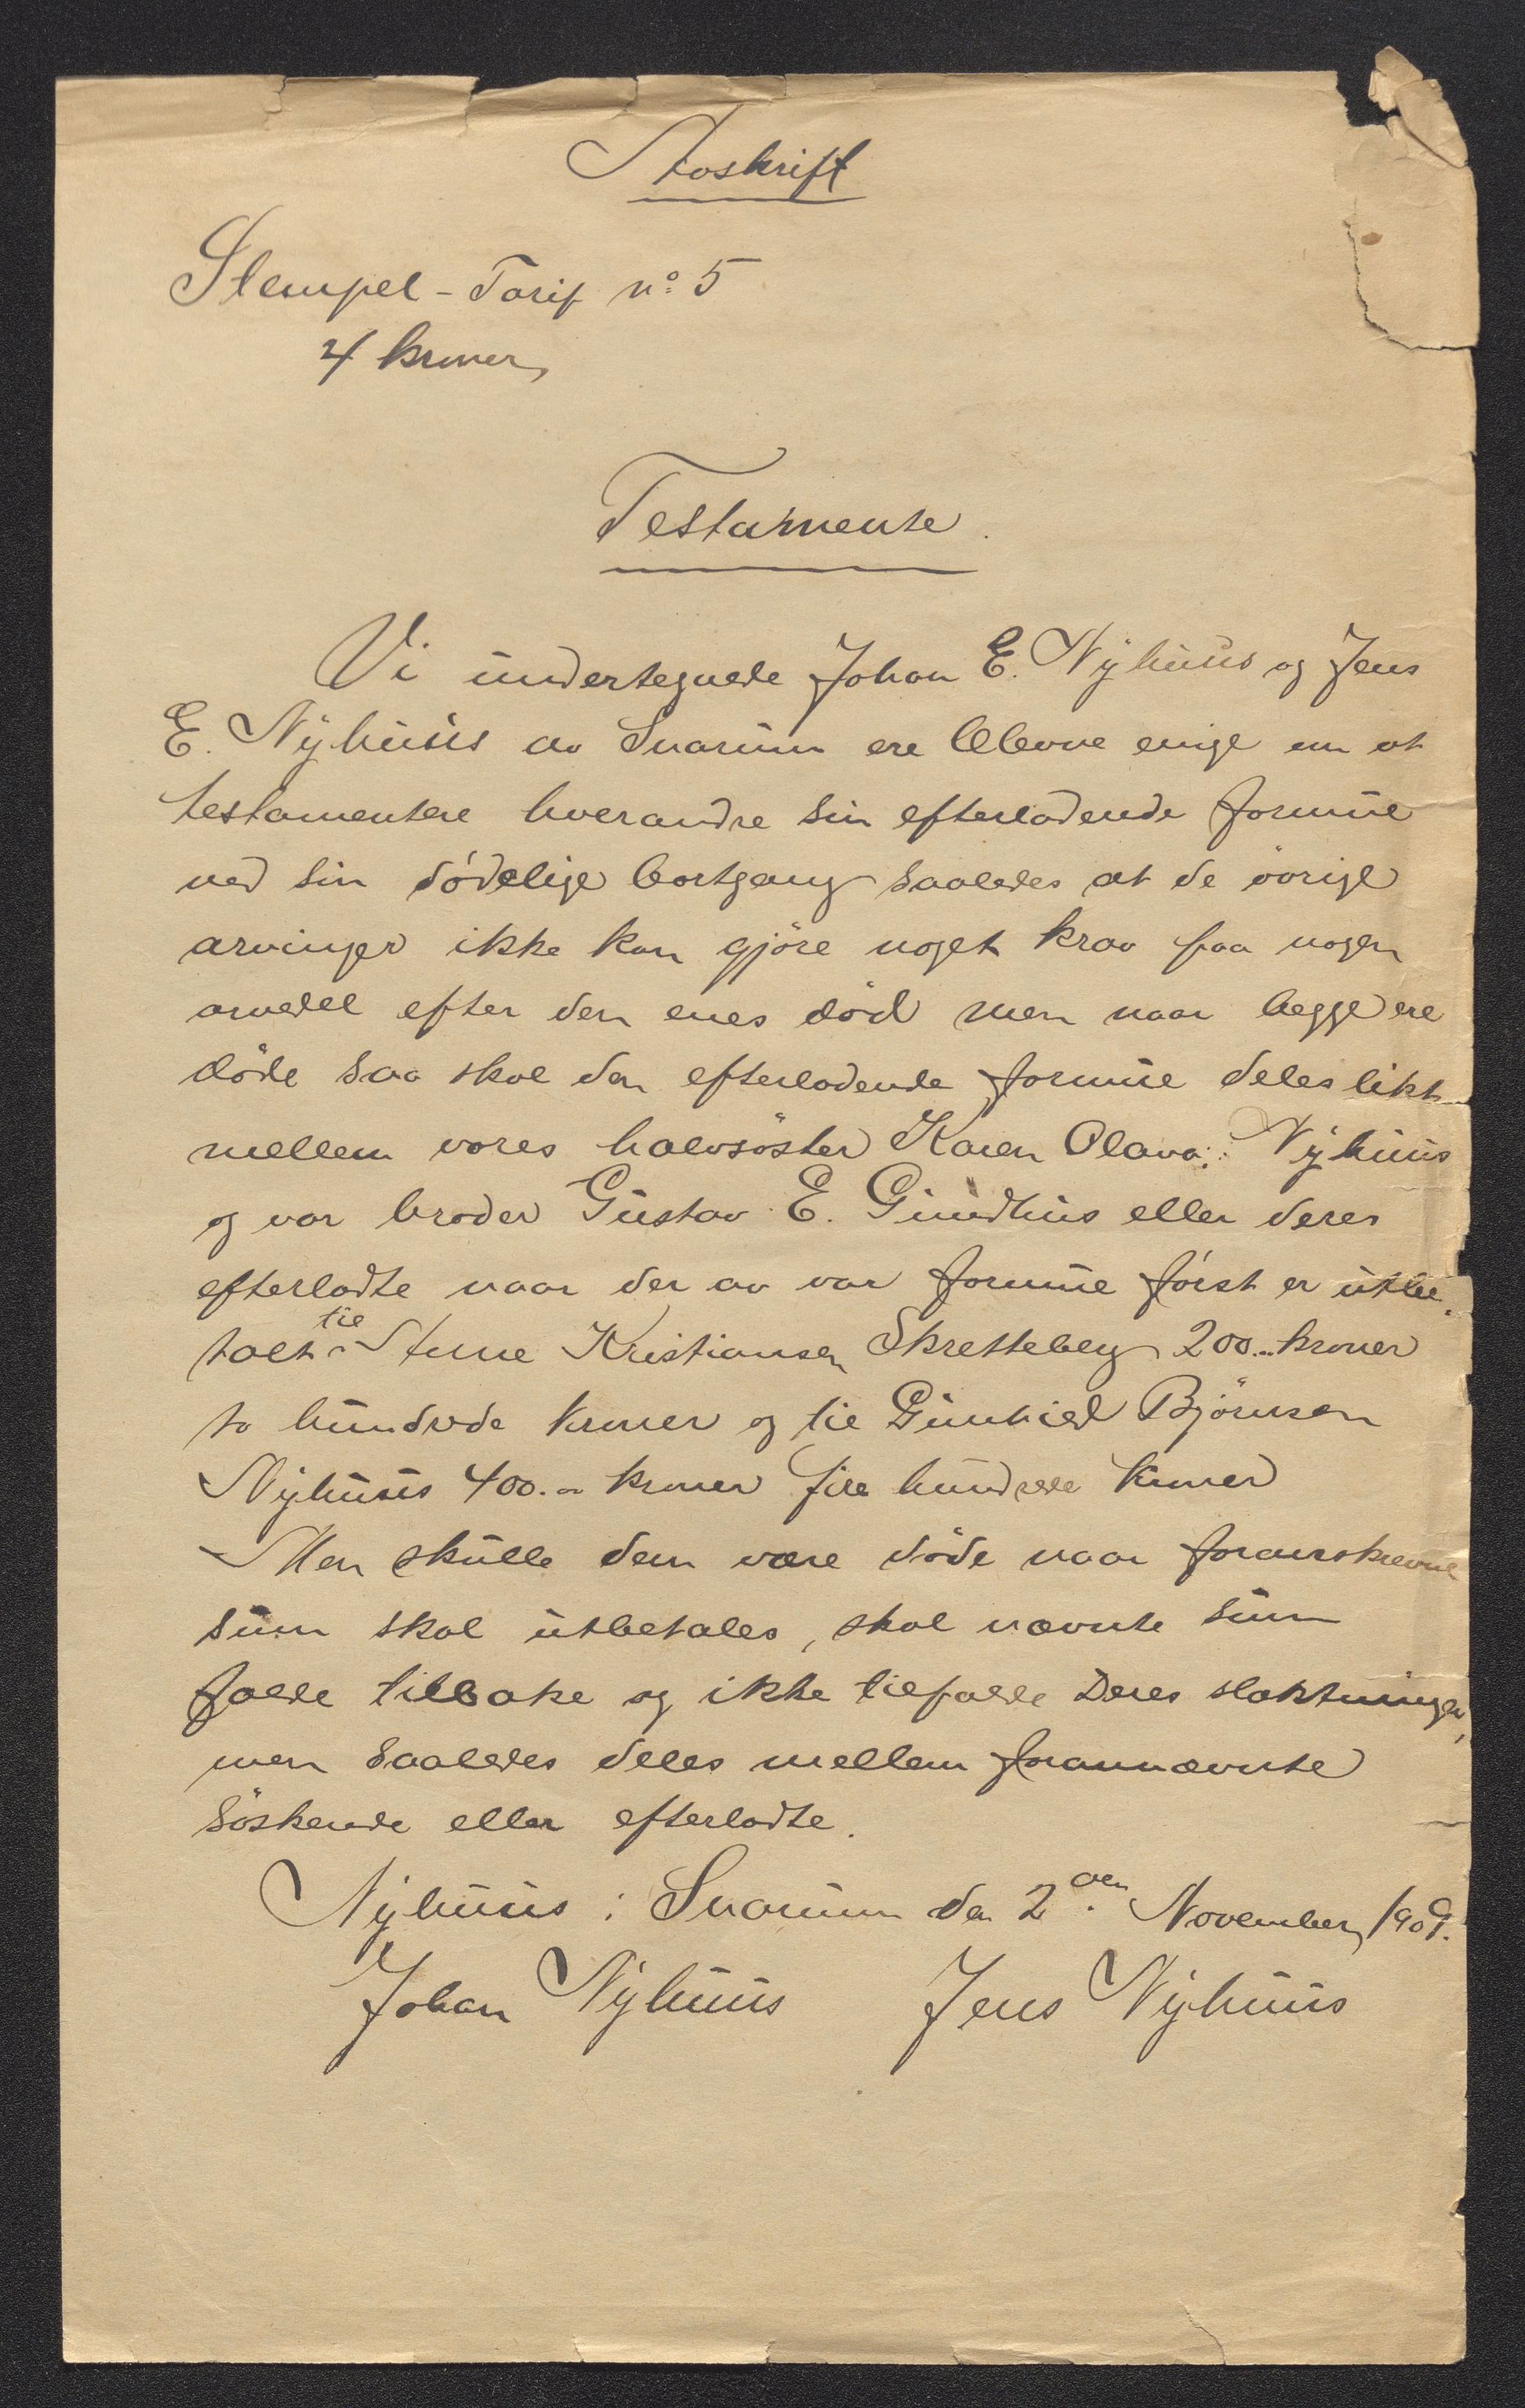 Avskrift
Stempel-Tarif nº 5
4 kroner
Testamente.
Vi undertegnede Johan E. Nyhuus og Jens
E. Nyhuus av Snarum ere blevne enige om at
testamentere hverandre sin efterladende formue
ved sin dödelige bortgang saaledes at de övrige
arvinger ikke kan gjöre noget krav paa nogen
arvedel efter den enes död men naar begge ere
döde saa skal den efterladende formue deles likt
mellem vores halvsöster Karen Olava Nyhuus
og vor broder Gustav E. Gundhus eller deres
efterladte naar der av vor formue först er utbe-
talt til Kristiansen Skretteberg 200.- kroner
to hundrede kroner og til Gunhild Björnsen
Nyhuus 400.- kroner fire hundrede kroner
Men skulle dem være döde naar foranskrevne
sum skal utbetales, skal nævnte sum
falde tilbake og ikke tilfalde Deres slektninger,
men saaledes deles mellem forannævnte
söskende eller efterladte.
Nyhuus i Snarum den 2den November 1909.
Johan Nyhuus Jens Nyhuus